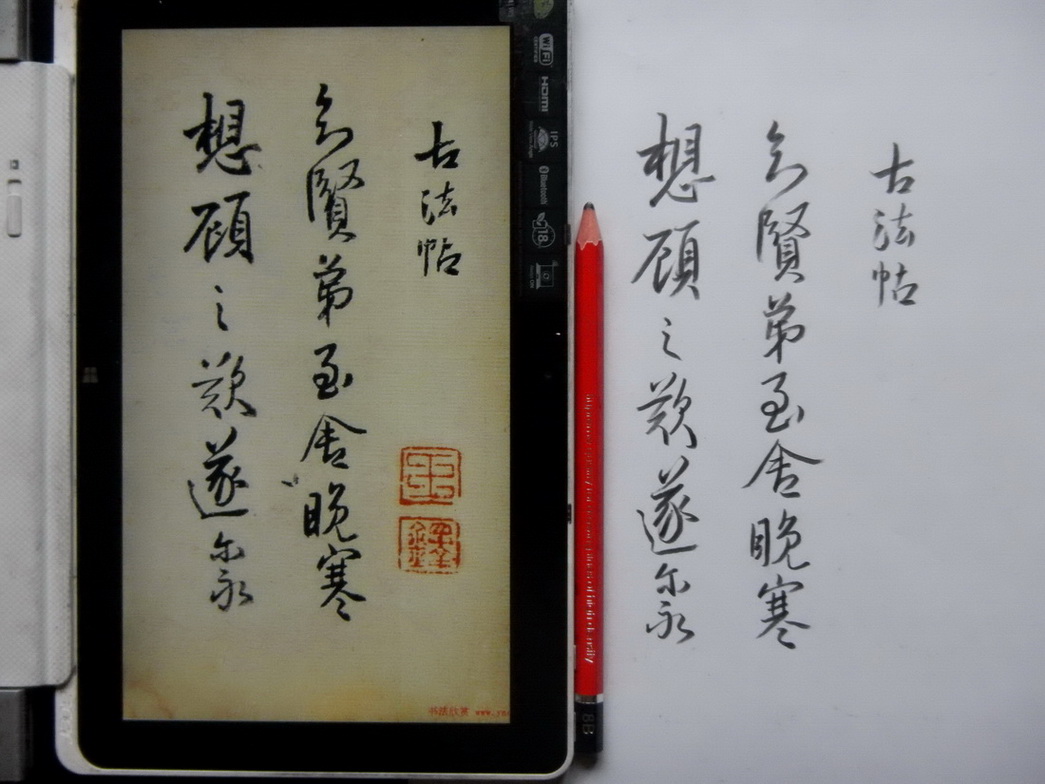 古法帖
知賢弟至舍晚寒
想顧之歎遂尔永
书法欣赏
WiFi
HDMI
IPS
Bluetooth
18
8B
古法帖
知賢弟至舍晚寒
想顧之歎遂尔永